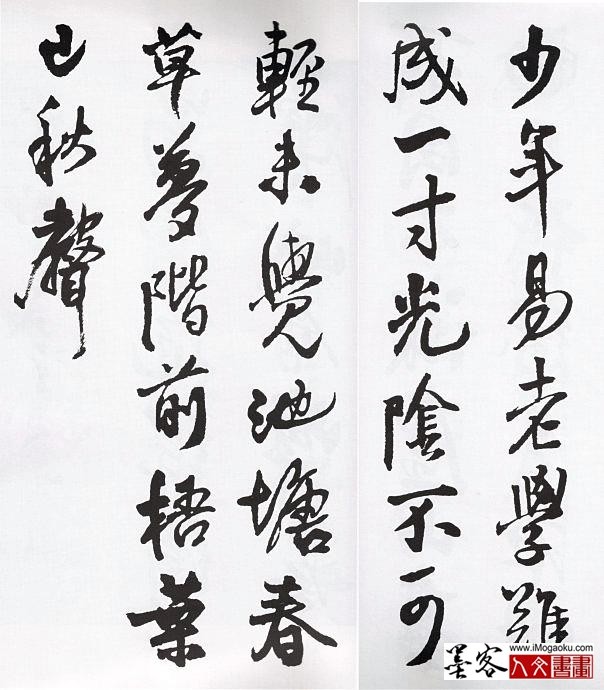 少年易老學難
成一寸光陰不可
輕未覺池塘春
草夢階前梧葉
已秋聲
www.iMogaoku.com
墨客
人文書畫